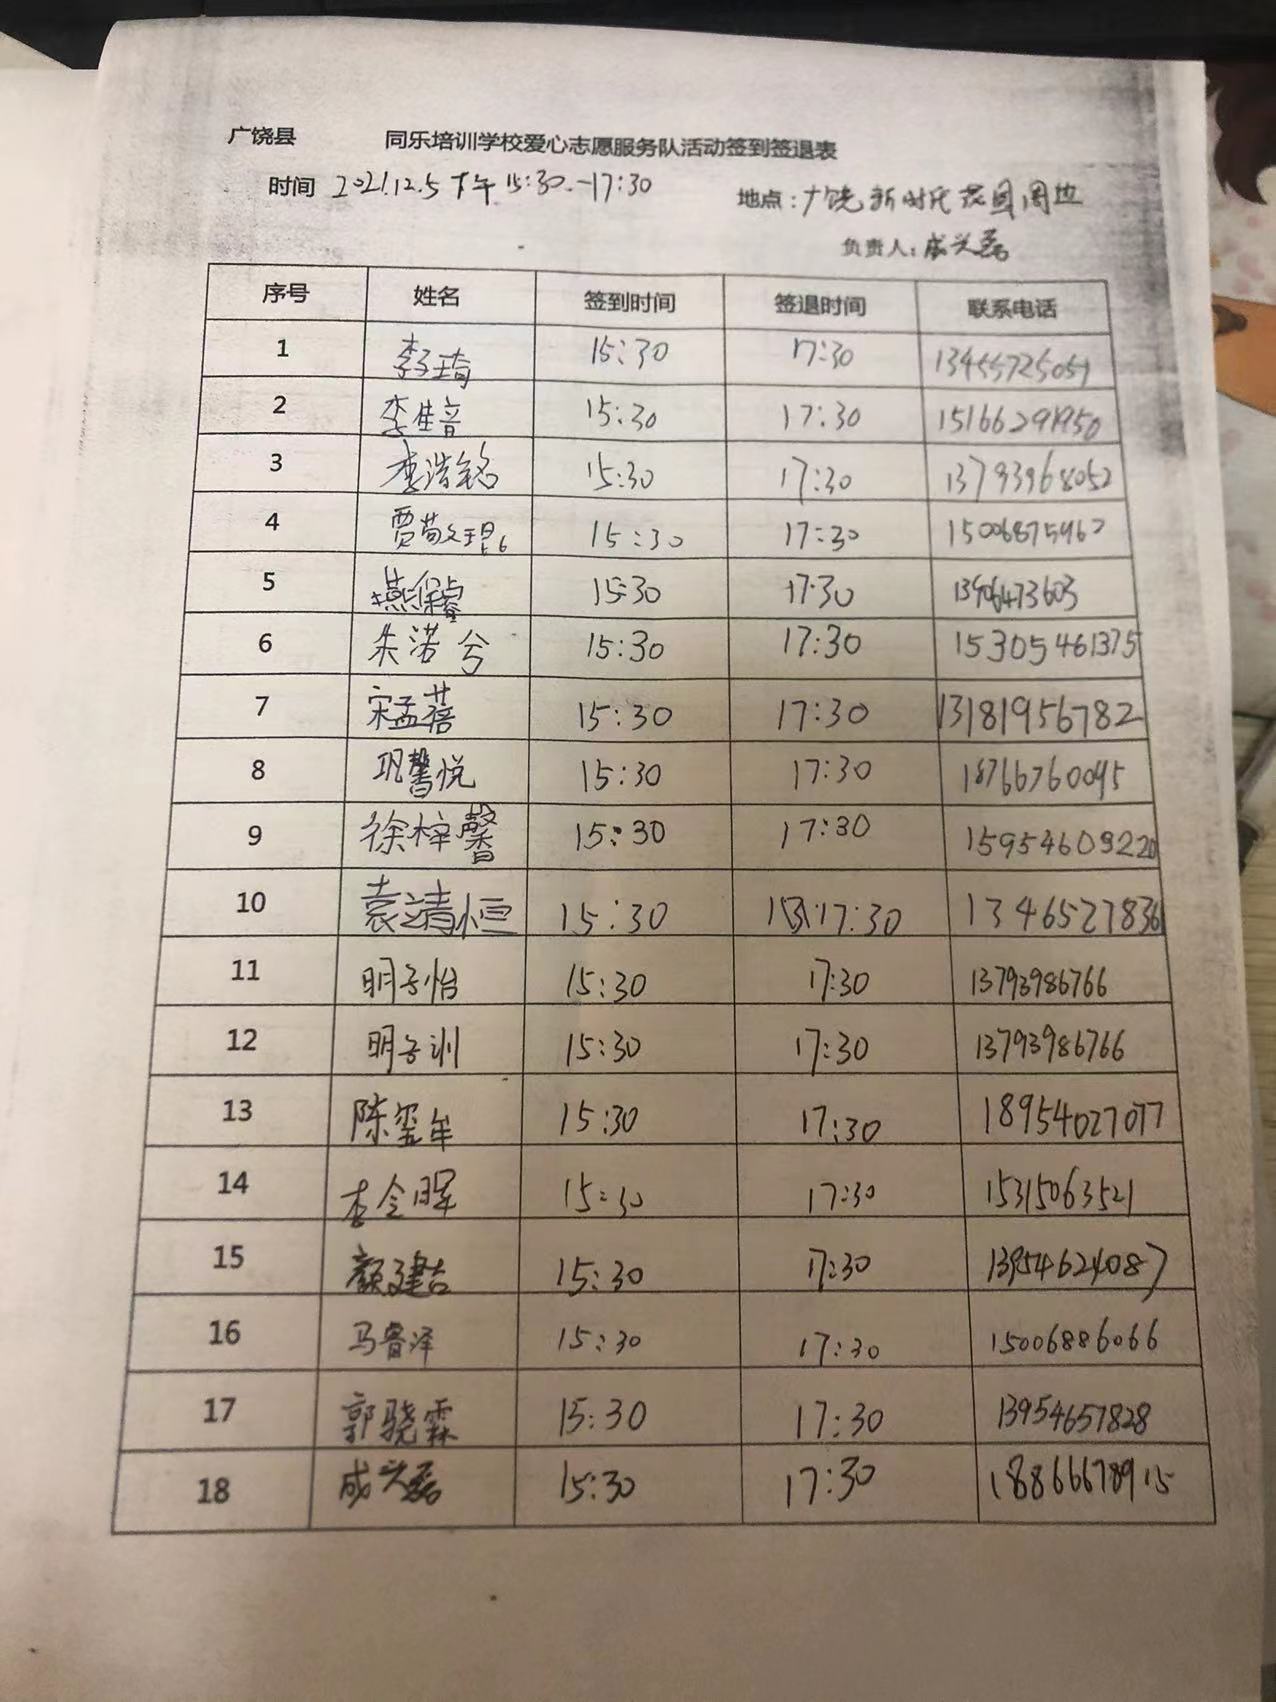 广饶县 同乐培训学校爱心志愿服务队活动签到签退表
时间 2021.12.5 下午 15:30.-17:30 地点:广饶新时代花园周边
负责人:成兴磊
序号 姓名 签到时间 签退时间 联系电话
1 李子琦 15:30 17:30 13455725051
2 李佳音 15:30 17:30
3 李浩铭 15:30 17:30 13793968052
4 贾敬琨 15:30 17:30 15006875962
5 燕保睿 15:30 17:30 13906473603
6 朱诺兮 15:30 17:30 15305461375
7 宋孟蓓 15:30 17:30 13181956782
8 巩馨悦 15:30 17:30 18766760095
9 徐梓馨 15:30 17:30 15954609220
10 袁靖恒 15:30 17:30 13465278361
11 明子怡 15:30 17:30 13793986766
12 明子训 15:30 17:30 13793986766
13 陈玺年 15:30 17:30 18954027077
14 李令晖 15:30 17:30 15315063521
15 颜建吉 15:30 17:30 13954624087
16 马睿泽 15:30 17:30 15006886066
17 郭骁霖 15:30 17:30 13954657828
18 成兴磊 15:30 17:30 18866678915